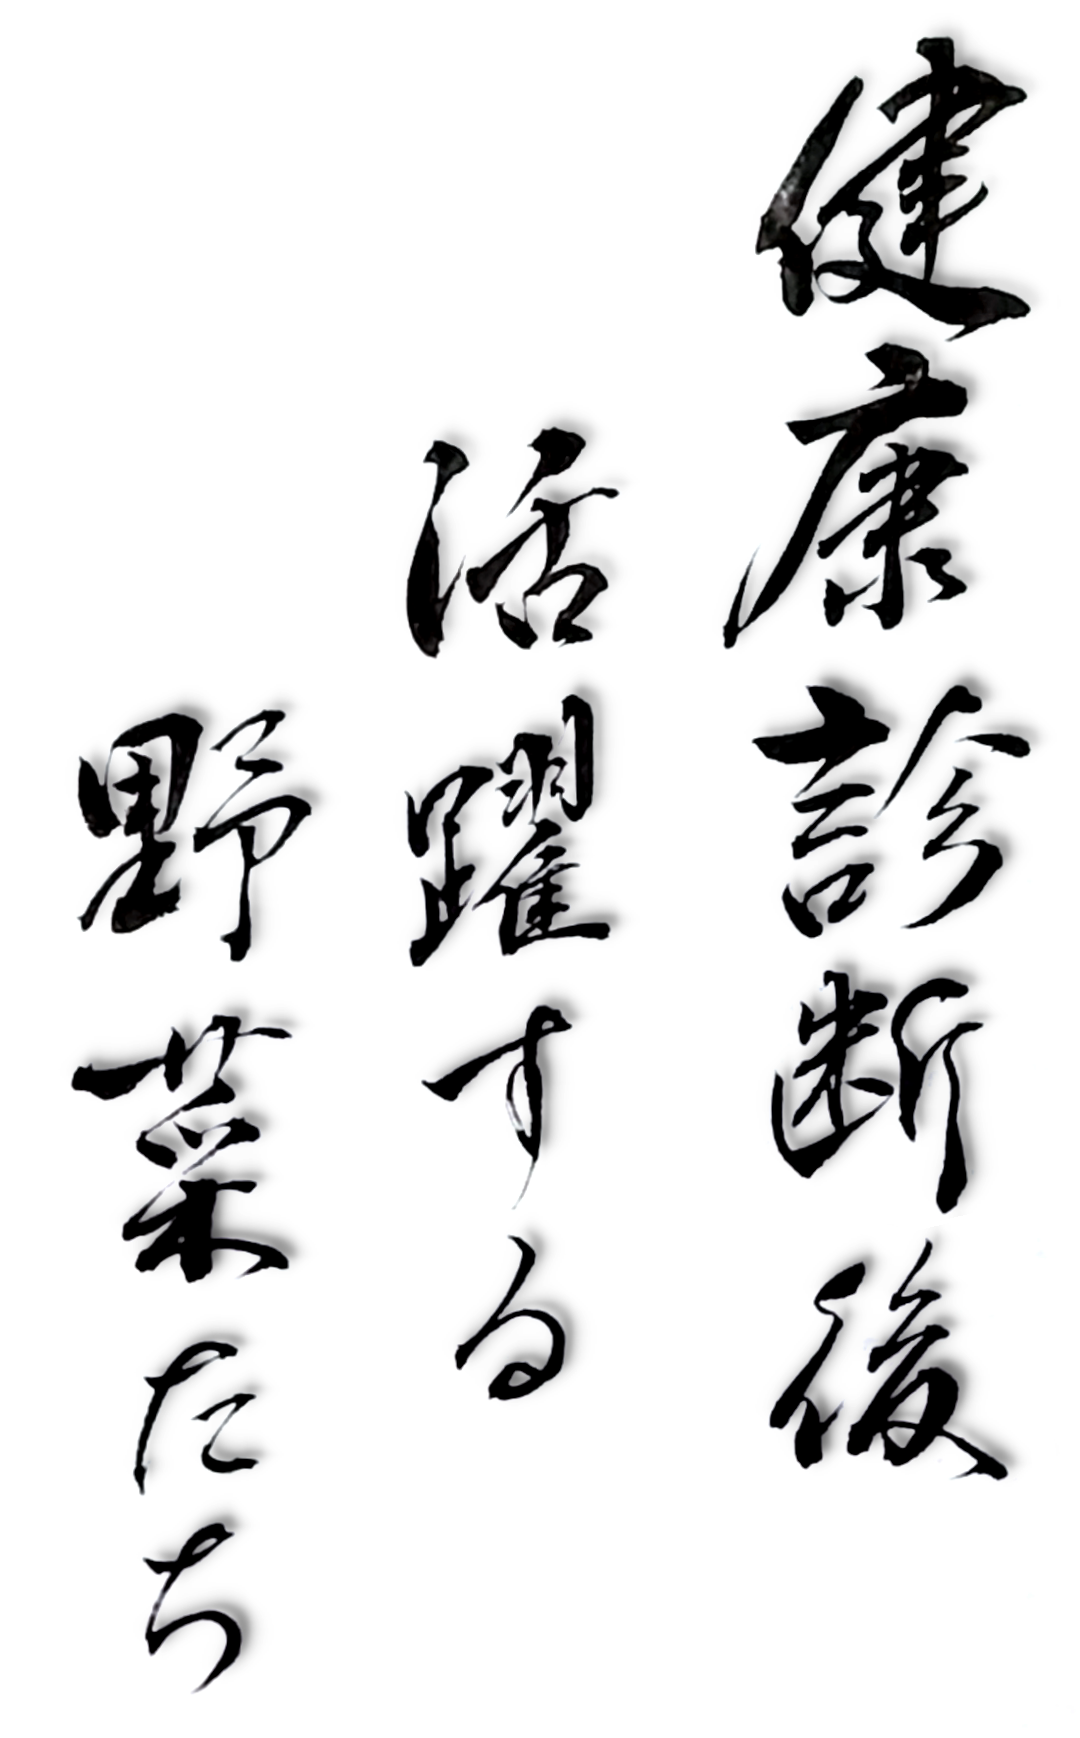 健康診断後
活躍する
野菜たち